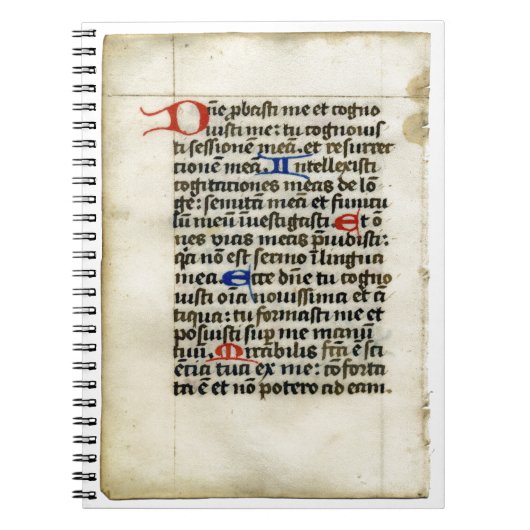 Dñe ꝓbasti me et cogno
uisti me: tu cognouis
ti sessionẽ meã. et resurrec
tionẽ meã. Intellexisti
cogitationes meas de lõ
ge: semitã meã et funicu
lũ meũ inuestigasti. Et õ
nes uias meas p̃uidisti:
q̃a nõ est sermo ĩ lingua
mea. Ecce dñe tu cogno
uisti oĩa nouissima et ã
tiqua: tu formasti me et
posuisti suꝑ me manũ
tuã. Mirabilis fc̃a ẽ sci
ẽcia tua ex me: cõforta
ta ẽ et nõ potero ad eam.